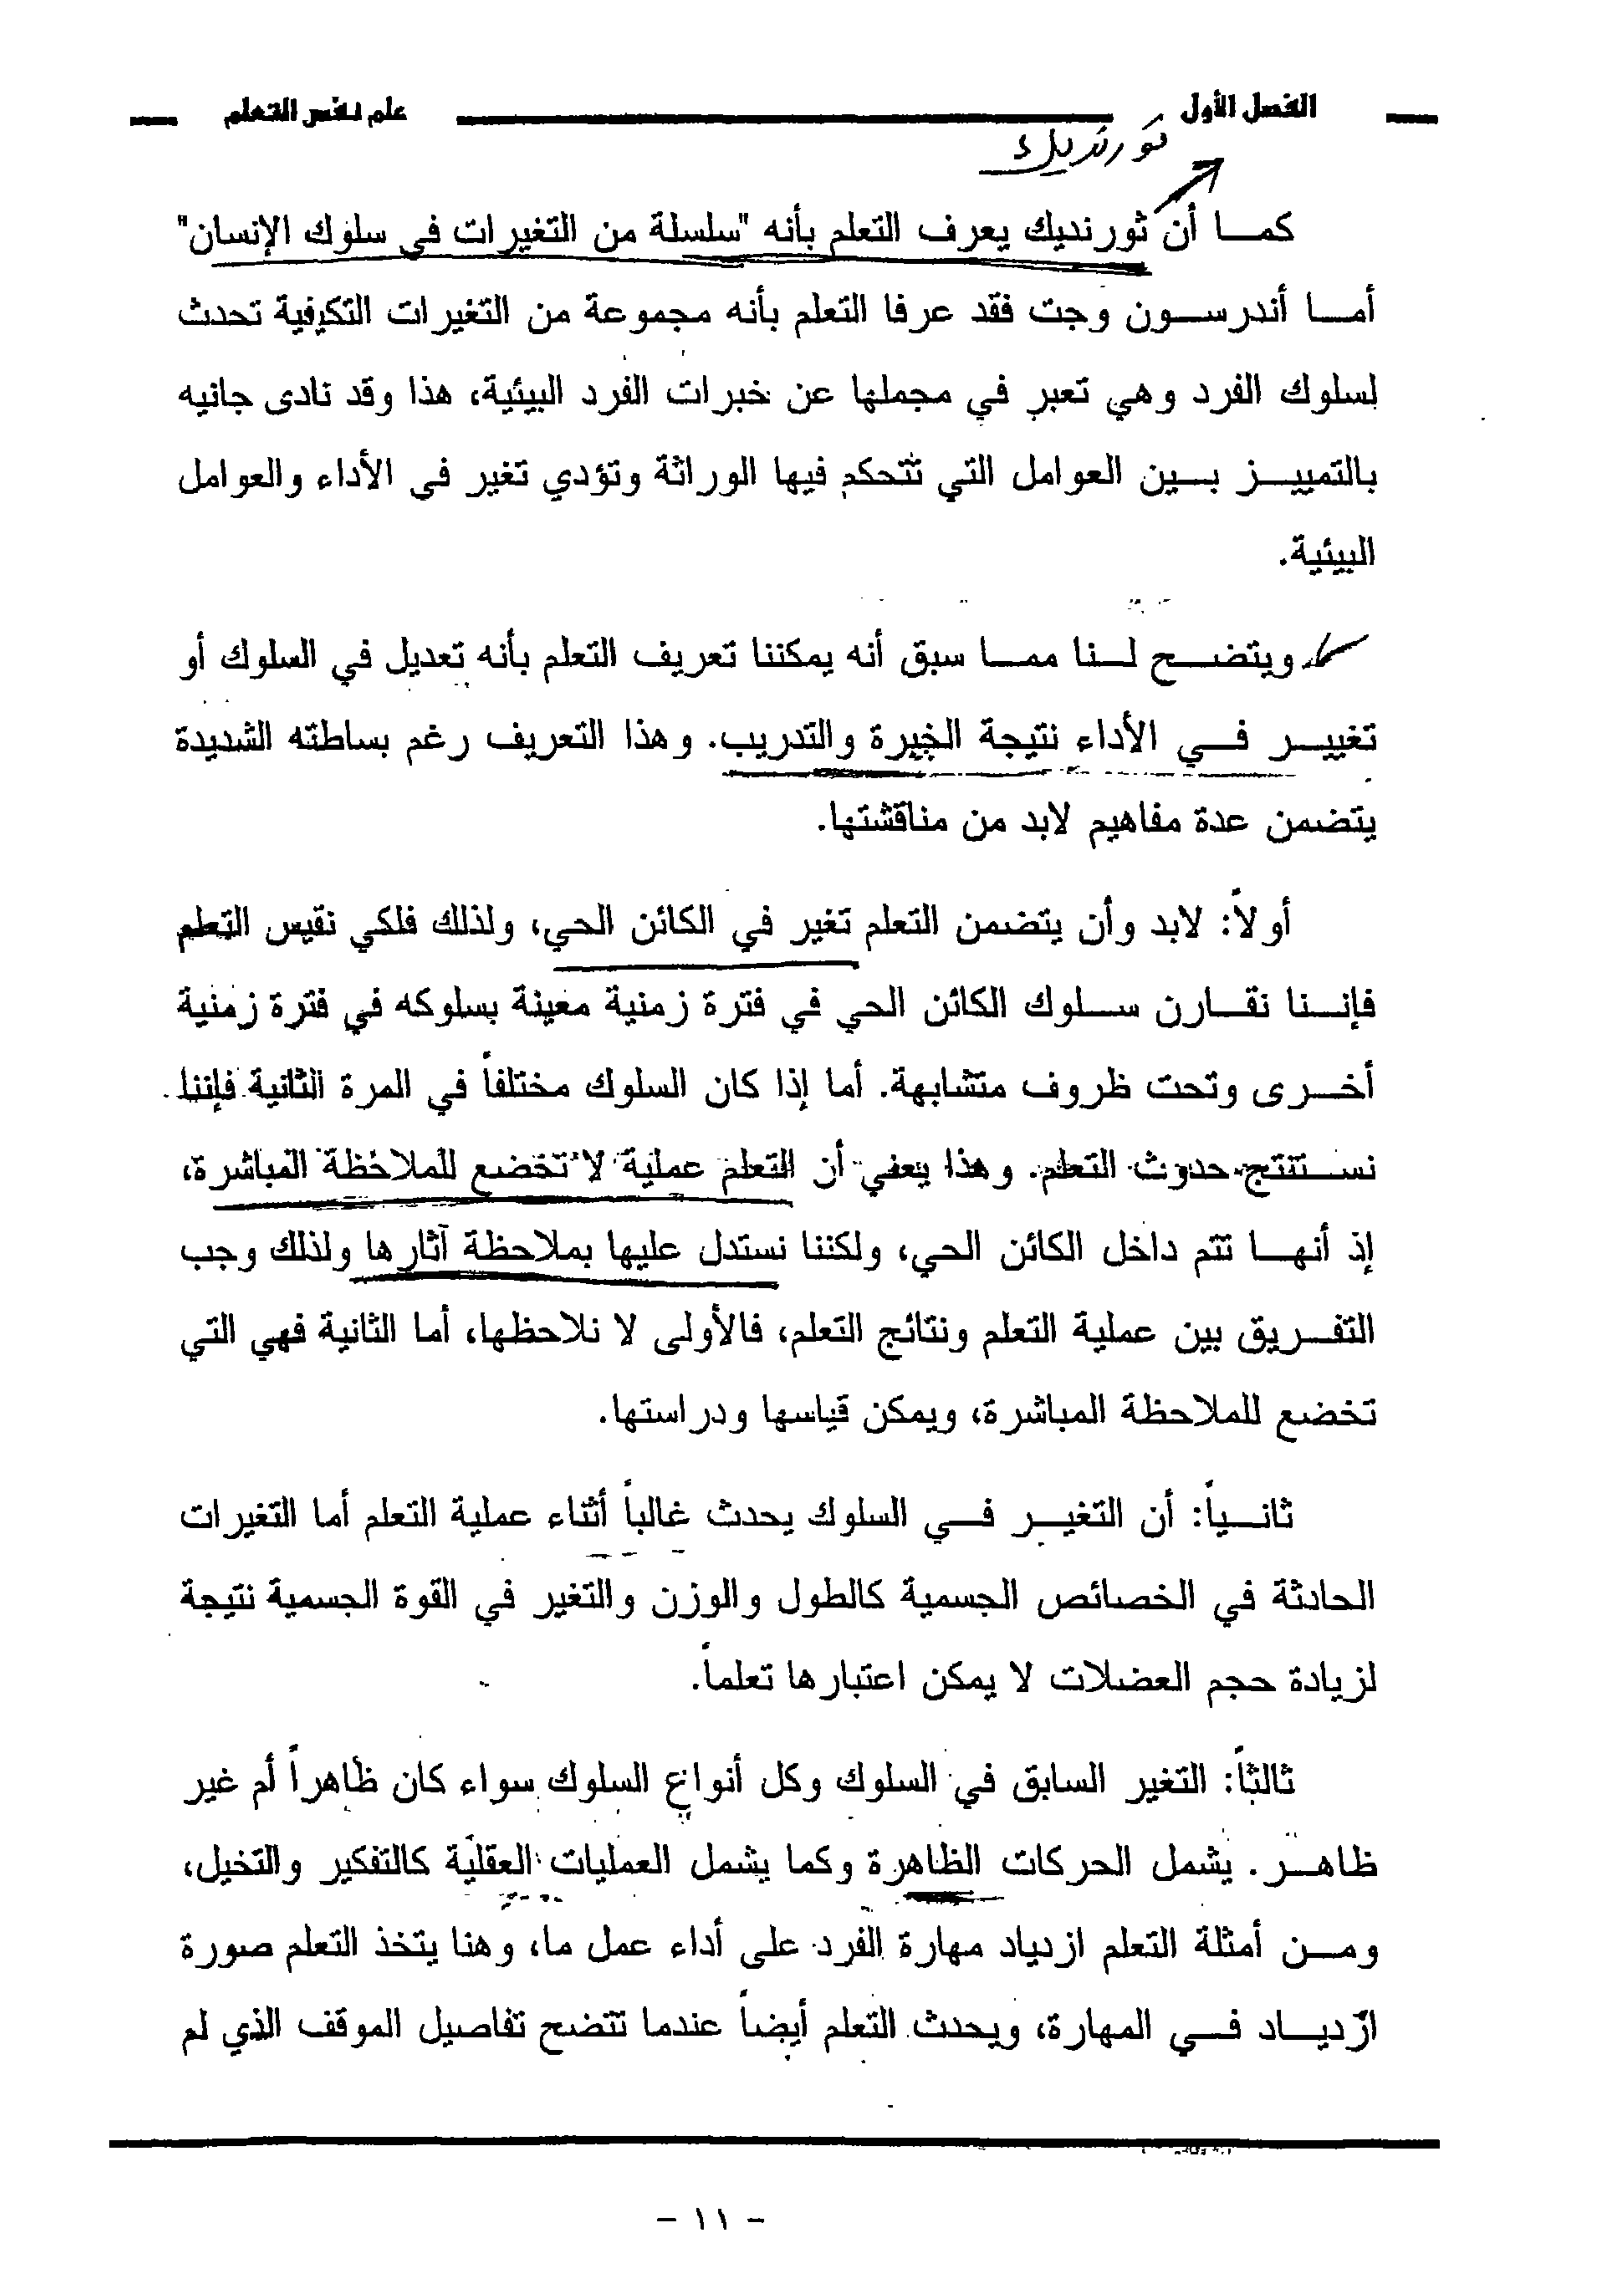 الفصل الأول
علم نفس التعلم
ثورنديك
كما أن ثورنديك يعرف التعلم بأنه "سلسلة من التغيرات في سلوك الإنسان"
أما أندرسون وجت فقد عرفا التعلم بأنه مجموعة من التغيرات التكيفية تحدث
لسلوك الفرد وهي تعبر في مجملها عن خبرات الفرد البيئية، هذا وقد نادى جانيه
بالتمييز بين العوامل التي تتحكم فيها الوراثة وتؤدي تغير في الأداء والعوامل
البيئية.
ويتضح لنا مما سبق أنه يمكننا تعريف التعلم بأنه تعديل في السلوك أو
تغيير في الأداء نتيجة الخبرة والتدريب. وهذا التعريف رغم بساطته الشديدة
يتضمن عدة مفاهيم لابد من مناقشتها.
أولاً: لابد وأن يتضمن التعلم تغير في الكائن الحي، ولذلك فلكي نقيس التعلم
فإننا نقارن سلوك الكائن الحي في فترة زمنية معينة بسلوكه في فترة زمنية
أخرى وتحت ظروف متشابهة. أما إذا كان السلوك مختلفاً في المرة الثانية فإننا
نستنتج حدوث التعلم. وهذا يعني أن التعلم عملية لا تخضع للملاحظة المباشرة،
إذ أنها تتم داخل الكائن الحي، ولكننا نستدل عليها بملاحظة آثارها ولذلك وجب
التفريق بين عملية التعلم ونتائج التعلم، فالأولى لا نلاحظها، أما الثانية فهي التي
تخضع للملاحظة المباشرة، ويمكن قياسها ودراستها.
ثانياً: أن التغير في السلوك يحدث غالباً أثناء عملية التعلم أما التغيرات
الحادثة في الخصائص الجسمية كالطول والوزن والتغير في القوة الجسمية نتيجة
لزيادة حجم العضلات لا يمكن اعتبارها تعلماً.
ثالثاً: التغير السابق في السلوك وكل أنواع السلوك سواء كان ظاهراً أم غير
ظاهر. يشمل الحركات الظاهرة وكما يشمل العمليات العقلية كالتفكير والتخيل،
ومن أمثلة التعلم ازدياد مهارة الفرد على أداء عمل ما، وهنا يتخذ التعلم صورة
ازدياد في المهارة، ويحدث التعلم أيضاً عندما تتضح تفاصيل الموقف الذي لم
- ١١ -